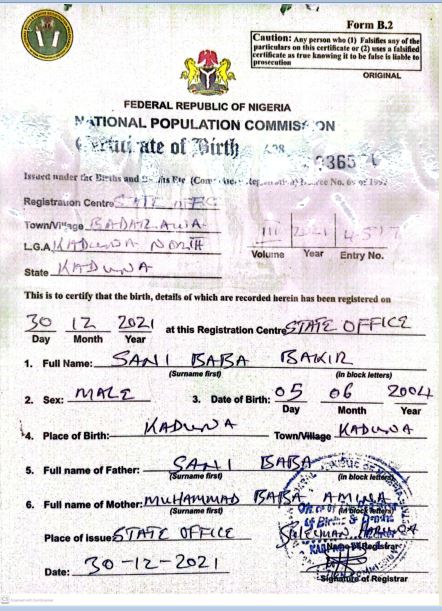 Form B.2
Caution: Any person who (1) Falsifies any of the
particulars on this certificate or (2) uses a falsified
certificate as true knowing it to be false is liable to
prosecution
ORIGINAL
FEDERAL REPUBLIC OF NIGERIA
NATIONAL POPULATION COMMISSION
Certificate of Birth
Issued under the Births and
Registration Centre STATE OFFICE
Town/Village BADARAWA
L.G.A KADUNA NORTH
State KADUNA
III 2021
Volume Year Entry No.
This is to certify that the birth, details of which are recorded herein has been registered on
30 12 2021 at this Registration Centre STATE OFFICE
Day Month Year
1. Full Name: SANI BABA BAKIR
(Surname first) (in block letters)
2. Sex: MALE 3. Date of Birth: 05 06 2004
Day Month Year
4. Place of Birth: KADUNA Town/Village KADUNA
5. Full name of Father: SANI BABA
(Surname first) (in block letters)
6. Full name of Mother: MUHAMMAD BABA AMINA
(Surname first) (in block letters)
Place of issue STATE OFFICE
Name of Registrar
Date: 30-12-2021
Signature of Registrar